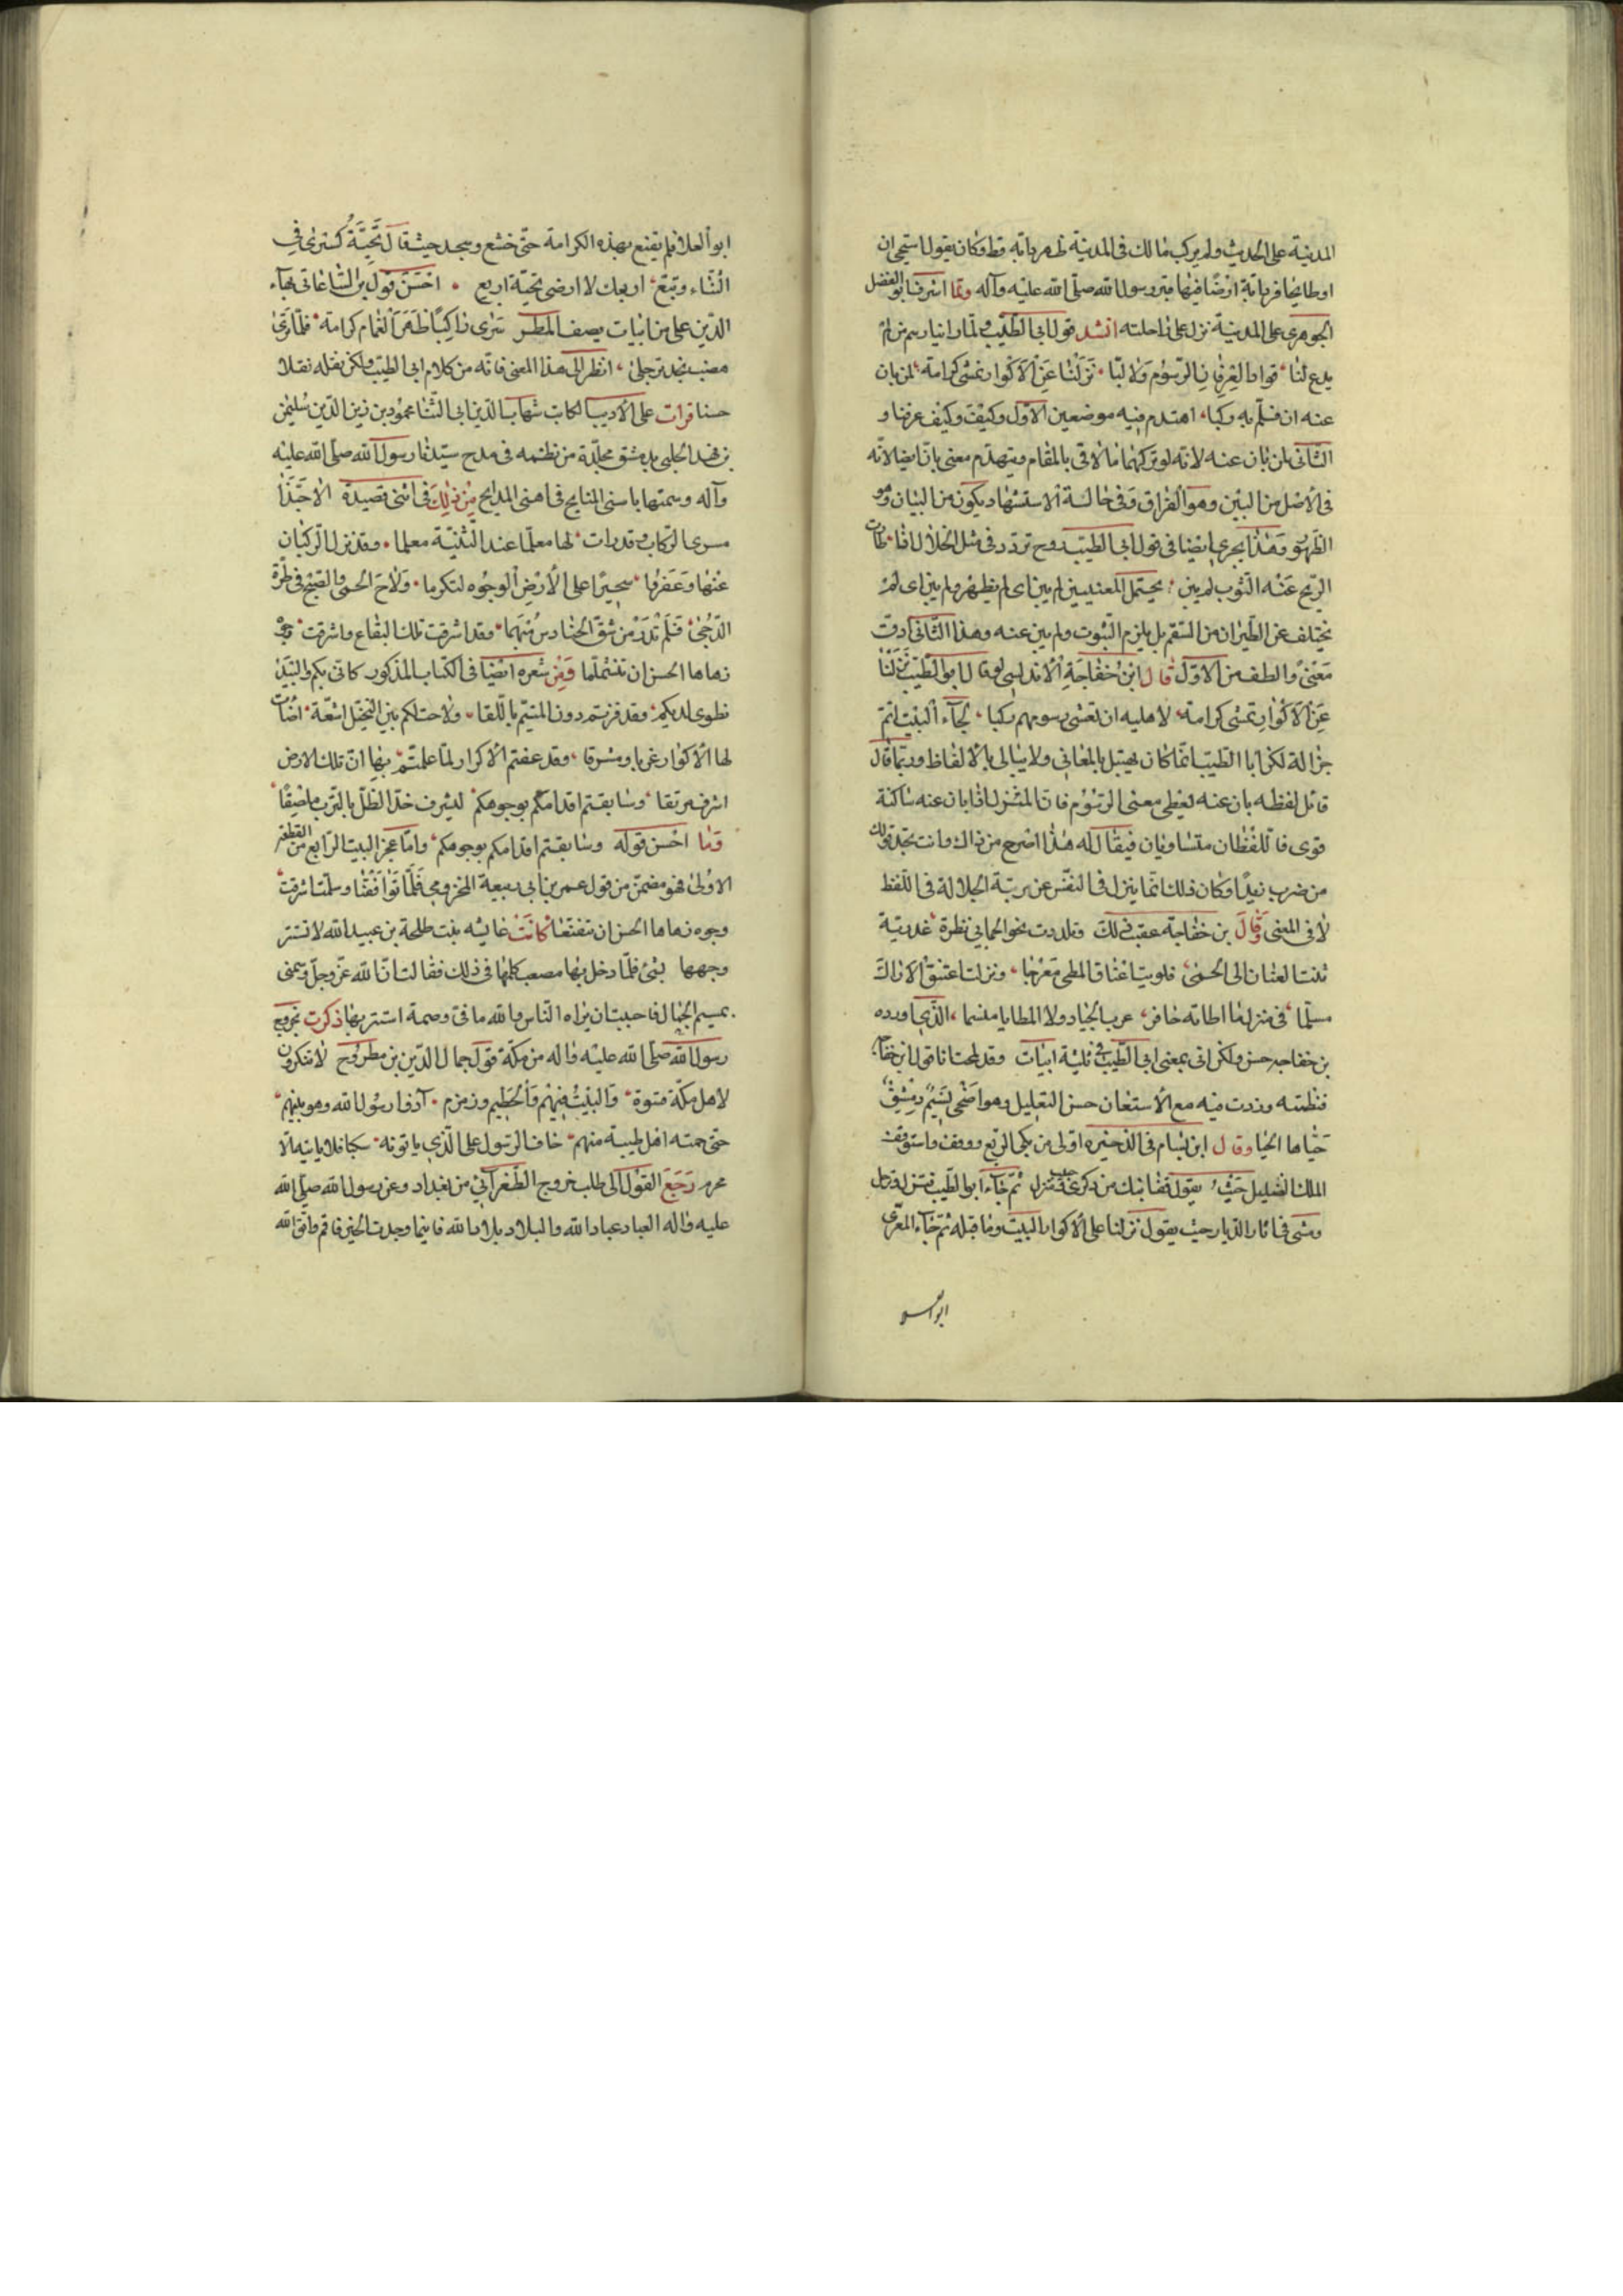 المدينة على الحديث ولم يركب مالك في المدينة ظهر دابة قط وكان يقول استحيى ان
اوطا بحافر دابة ارضا فيها قبر رسول الله صلى الله عليه وآله ولما اشرف ابو الفضل
الجوهرى على المدينة نزل على راحلته انشد قول ابى الطيب ولما راينا رسم من لم
يدع لنا فوادا لعرفان الرسوم ولا لبا نزلنا عن الاكوار نمشى كرامة لمن بان
عنه ان نلم به ركبا اهتدم فيه موضعين الاول وكيفت وكيف عرفنا و
الثانى بان عنه لانه لو تركهما ما لاق بالمقام ويتهدم معنى بان ايضا لانه
فى الاصل من البين وهو الفراق وفى حالة الاستشهاد يكون من البيان وهو
الظهور وهذا يجرى ايضا فى قول ابى الطيب روح تردد فى مثل الخلال اذا اطارت
الريح عنه الثوب لم يبن يحتمل المعنيين لم يبن اى لم يظهر ولم يبن اى لم
يختلف عن الطيران من السقم بل يلزم الثبوت ولم يبن عنه وهذا الثانى ادق
معنى والطف من الاول قال ابن خفاجة الاندلسى لو قال ابو الطيب نزلنا
عن الاكوار نمشى كرامة لاهليه ان نغشى رسومهم ركبا لجاء البيت اتم
جزالة لكن ابا الطيب انما كان يهتبل بالمعانى ولا يبالى بالالفاظ وربما قال
قائل لفظه بان عنه يعطى معنى الرسوم فان المنزل اذا بان عنه ساكنه
قوى فاللفظان متساويان فيقال له هذا اصرح من ذاك وانت تجد قولك
من ضرب زيدا وكان ذلك انما ينزل فى النفس عن رتبة الجلالة فى اللفظ
لا فى المعنى وقال بن خفاجة عقب ذلك ولقد رددت نحو الحمى بى نظرة عذرية
ثنت العنان الى الحمى فلويت اعناق المطى معرجا ونزلت اعتنق الاراك
مسلما فى منزل ما اوطاته حافر عرب الجياد ولا المطايا منسما الذى اورده
بن خفاجه حسن ولكن اتى بمعنى ابى الطيب فى ثلثة ابيات وقد لمحت انا قول ابن خفاجة
فنظمته وزدت فيه مع الاستعان حسن التعليل وهو اضحى نسيم دمشق
حياها الحيا وقال ابن بسام فى الذخيره اول من بكى الربع ووقف واستوقف
الملك الضليل حيث يقول قفا نبك من ذكرى حبيب ومنزل ثم جاء ابو الطيب فنزل وترجل
ومشى فى اثار الديار حيث يقول نزلنا على الاكوار البيت وما قبله ثم جاء المعرى
ابو العلا
ابو العلا فلم يقنع بهذه الكرامة حتى خشع وسجد حيث قال تحية كسرى فى
الثناء وتبع لربعك لا ارضى تحية اربع احسن قول بن الساعاتى بهاء
الدين على من ابيات يصف المطر ترى راكبا ظهر الغمام كرامة فلما رأى
هضب نجد ترجل انظر الى هذا المعنى فانه من كلام ابى الطيب ولكن نقله نقلا
حسنا قرات على الاديب الكاتب شهاب الدين ابى الثنا محمود بن زين الدين سليمن
بن فهد الحلبى بدمشق مجلدة من نظمه فى مدح سيدنا رسول الله صلى الله عليه
وآله وسمتها باسنى المنايح فى اهنى المدايح من ذلك فى اثنى قصيدة الا حبذا
مسرى الركاب وقد رات لها معلما عند الثنية معلما وقد نزل الركبان
عنها وعفروا سحيرا على الارض الوجوه لتكرما ولاح الحمى والصبح فى طرة
الدجى فلم ندر من شق الحنادس منهما وقد اشرقت تلك البقاع واشرقت وجوه
زهاها الحسن ان تتلثما ومن شعره ايضا فى الكتاب المذكور كانى بكم والبيد
تطوى لديكم وقد فزتم دون المتيم باللقا ولاحت لكم بين النخيل اشعة اضاءت
لها الاكوار غربا ومشرقا وقد عفتم الاكوار لما علمتم بها ان تلك الارض
اشرف مرتقا وسابقتم اقدامكم بوجوهكم لشرف خد الظل بالترب ملصقا
وما احسن قوله وسابقتم اقدامكم بوجوهكم واما عجز البيت الرابع من القطعة
الاولى فهو مضمن من قول عمر بن ابى ربيعة المخزومى فلما تواقفنا وسلمت اشرقت
وجوه زهاها الحسن ان تتقنعا كانت عايشه بنت طلحة بن عبيد الله لا تستر
وجهها بشئ فلما دخل بها مصعب كلمها فى ذلك فقالت ان الله عز وجل وسمنى
بميسم الجمال فاحببت ان يراه الناس والله ما فى وصمة استتر بها ذكرت بخروج
رسول الله صلى الله عليه واله من مكة قول جمال الدين بن مطروح لا تنكرون
لاهل مكة قسوة والبيت فيهم والحطيم وزمزم آذوا رسول الله وهو نبيهم
حتى حمته اهل طيبة منهم خاف الرسول على الذى ياتونه سكبا فلا ياتيه الا
محرم رجع القول الى طلب خروج الطغرآئى من بغداد وعن رسول الله صلى الله
عليه واله العباد عباد الله والبلاد بلاد الله فاينما وجدت الخير فاقم واتق الله